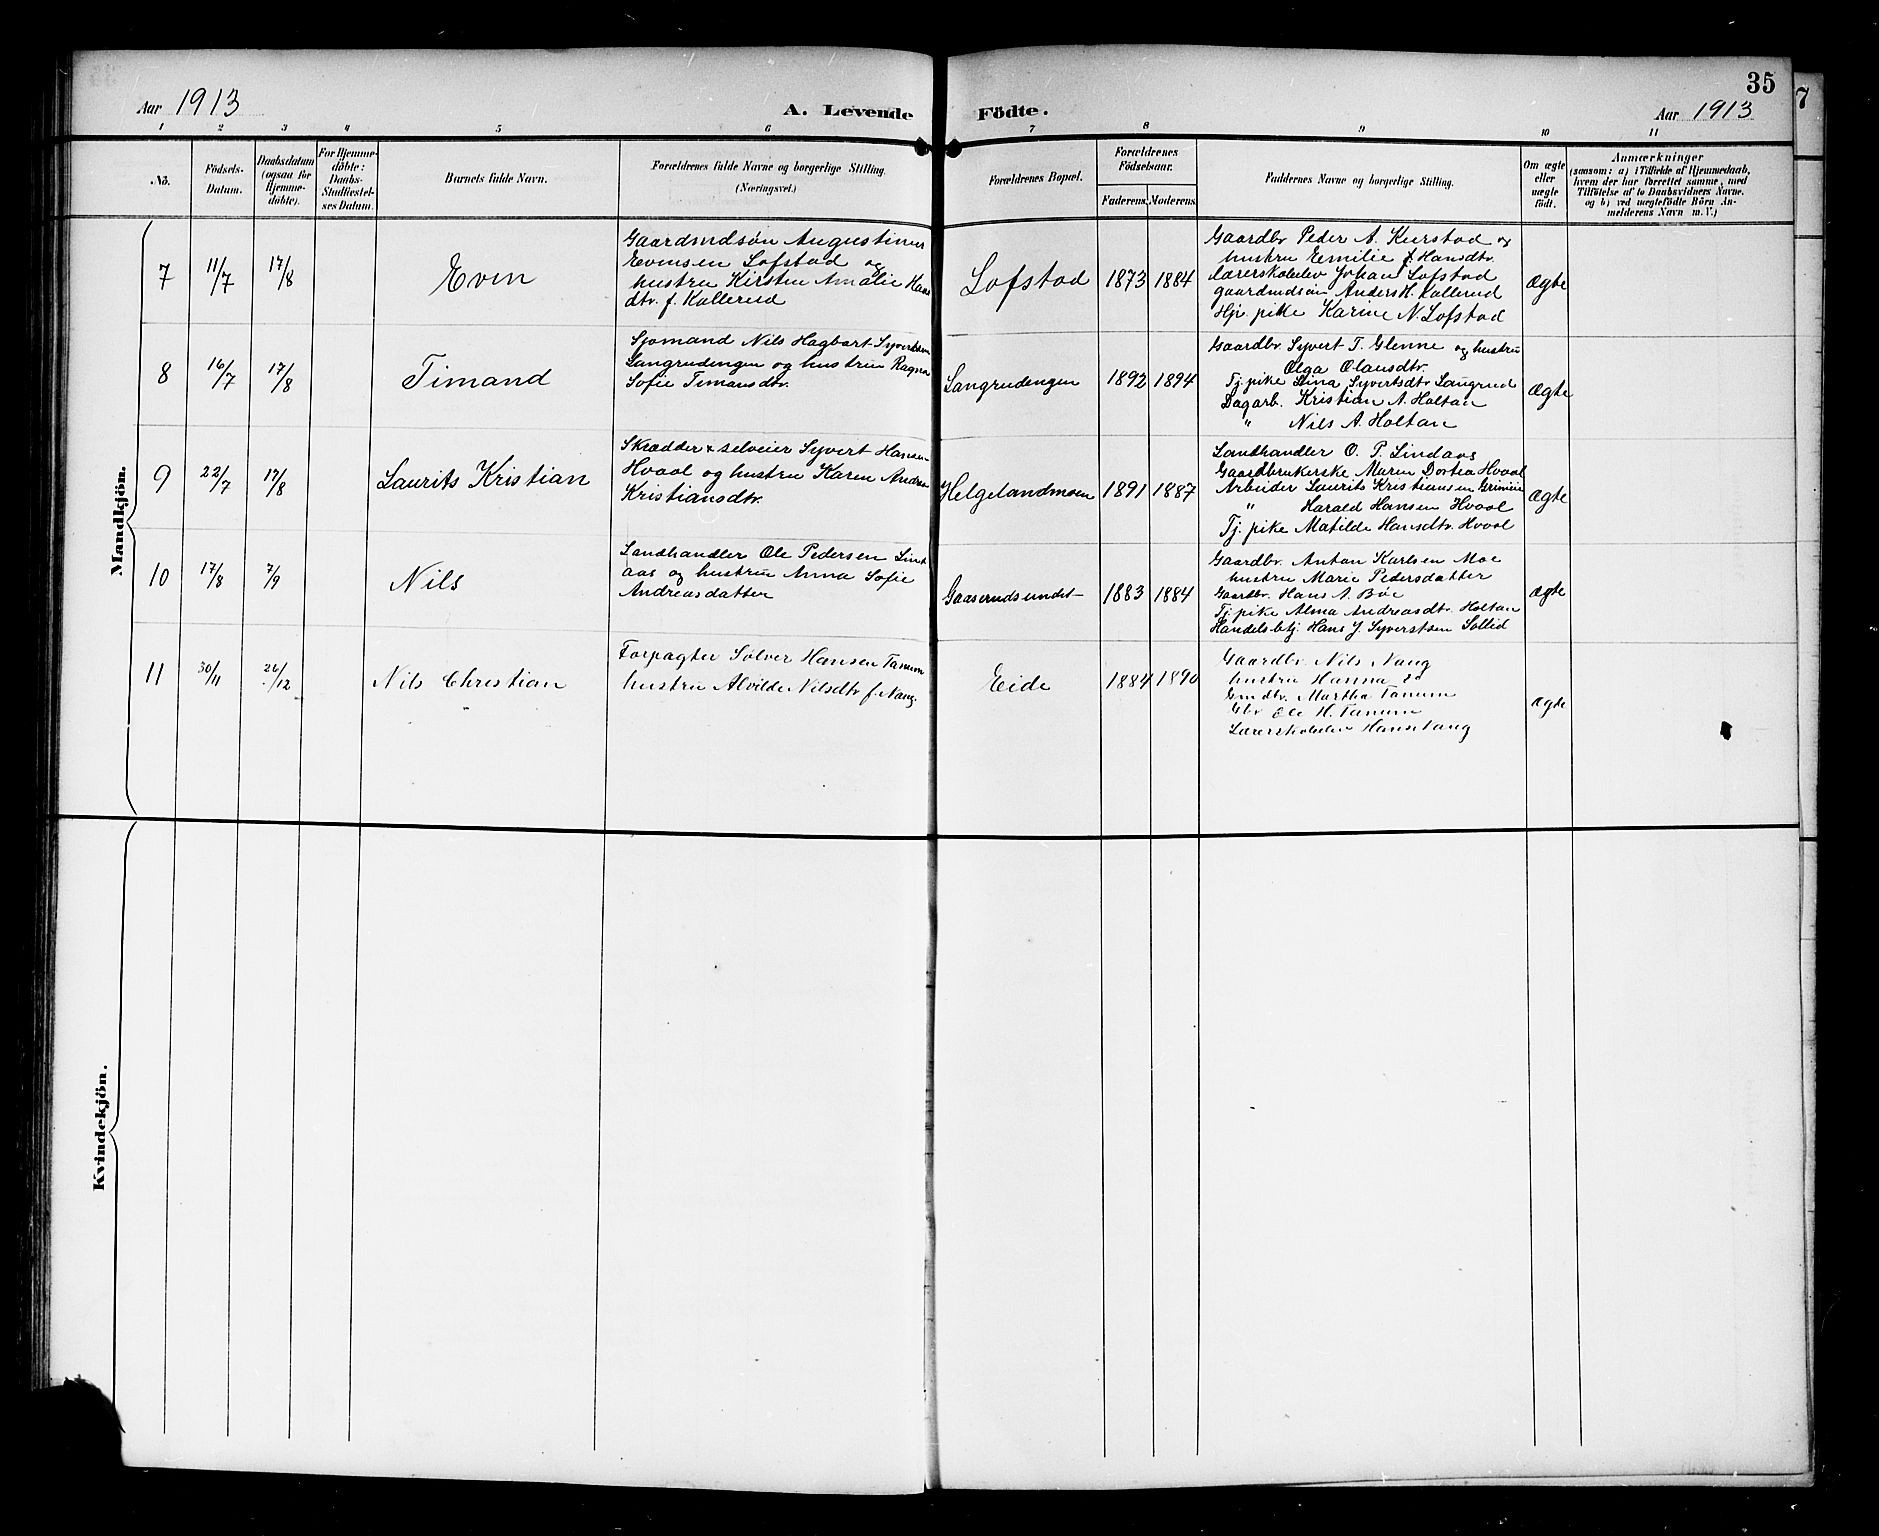 35
Aar 1913
A. Levende Födte.
Aar 1913
1 2 3 4 5 6 7 8 9 10 11
No.
Födsels-
Datum.
Daabsdatum
(ogsaa for
Hjemme-
döbte).
For Hjemme-
döbte:
Daabs-
Stadfæstel-
ses Datum.
Barnets fulde Navn.
Forældrenes fulde Navne og borgerlige Stilling.
(Næringsvei.)
Forældrenes Bopæl.
Forældrenes
Födselsaar.
Faderens. Moderens.
Faddernes Navne og borgerlige Stilling.
Om ægte
eller
uægte
födt.
Anmærkninger
(saasom: a) i Tilfælde af Hjemmedaab,
hvem der har forrettet samme, med
Tilföielse af to Daabsvidners Navne.
og b) ved uægtefödte Börn An-
melderens Navn m. V.)
Mandkjön.
7 11/7 17/8 Evin
Gaardmdsøn Augustinus
Evensen Lofstad og
hustru Kirstin Amalie Hans
dtr. f. Kallerud
Lofstad 1873 1884
Gaardbr Peder A. Kurstad og
hustru Emilie f Hansdtr.
Lærerskoleelev Johan Lofstad
gaardmdsøn Anders H. Kallerud
Hjv. pike Karine N. Lofstad
Ægte
8 16/7 17/8 Timand
Sjomand Nils Hagbart Syvertsen
Langrudengen og hustru Ragna
Sofie Timansdtr.
Langrudengen 1892 1894
Gaardbr. Syvert T. Glenne og hustru
Olga Olausdtr.
Tj. pike Lina Syvertsdtr Langrud
Dagarb. Kristian A. Holtan
" Nils A. Holtan
Ægte
9 22/7 17/8 Laurits Kristian
Skrædder & selveier Syvert Hansen
Hvaal og hustru Karen Andrea
Kristiansdtr.
Helgelandmoen 1891 1887
Landhandler O. P. Lindaas
Gaardbrukerske Maren Dortea Hvaal
Arbeider Laurits Kristiansen
" Harald Hansen Hvaal
Tj. pike Matilde Hansdtr. Hvaal
Ægte
10 17/8 7/9 Nils
Landhandler Ole Pedersen Lind
aas og hustru Anna Sofie
Andreasdatter
Gaaserudsundet 1883 1884
Gaardbr. Anton Karlsen Moe
hustru Marie Pedersdatter
Gaardbr. Hans A. Böe
Tj. pike Alma Andreasdtr. Holtan
Handelsbtj. Hans J. Syvertsen Sollid
Ægte
11 30/11 26/12 Nils Christian
Forpagter Sølver Hansen Tanum
hustru Alvilde Nilsdtr f. Nang.
Eide 1884 1890
Gaardbr. Nils Nang
hustru Hanna do
Gmdbr. Martha Tanum
Gbr Ole H. Tanum
Lærerskoleelev Hans Nang
Ægte
Kvindekjön.
7